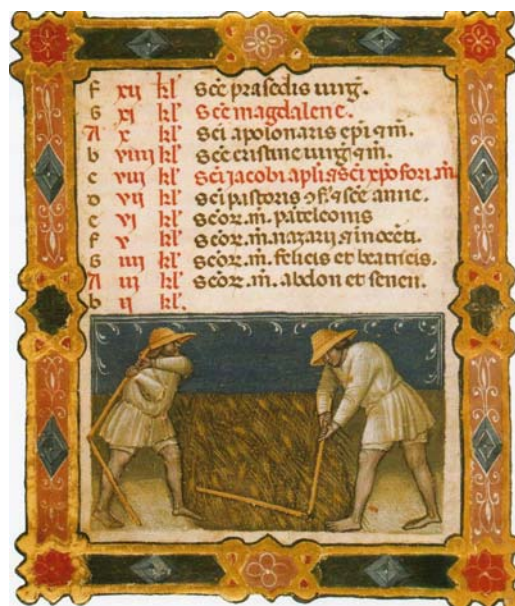 f xij kl' Scē praxedis uirg̃.
G xj kl' Scē magdalene.
A x kl' Sci apolonaris ep̄i ꝗm̃.
b viiij kl' Scē cristine uirg̃ ꝗm̃.
c viij kl' Sci jacobi apl̃i ꝗsci xpofori m̃.
D vij kl' Sci pastoris ꝯf. ꝗscē anne.
e vj kl' Scōꝝ. m̃. patelconis
f v kl' Scōꝝ. m̃. nazarij ꝗinocẽti.
G iiij kl' Scōꝝ. m̃. felicis et beatricis.
A iij kl' Scōꝝ. m̃. abdon et senen.
b ij kl'.